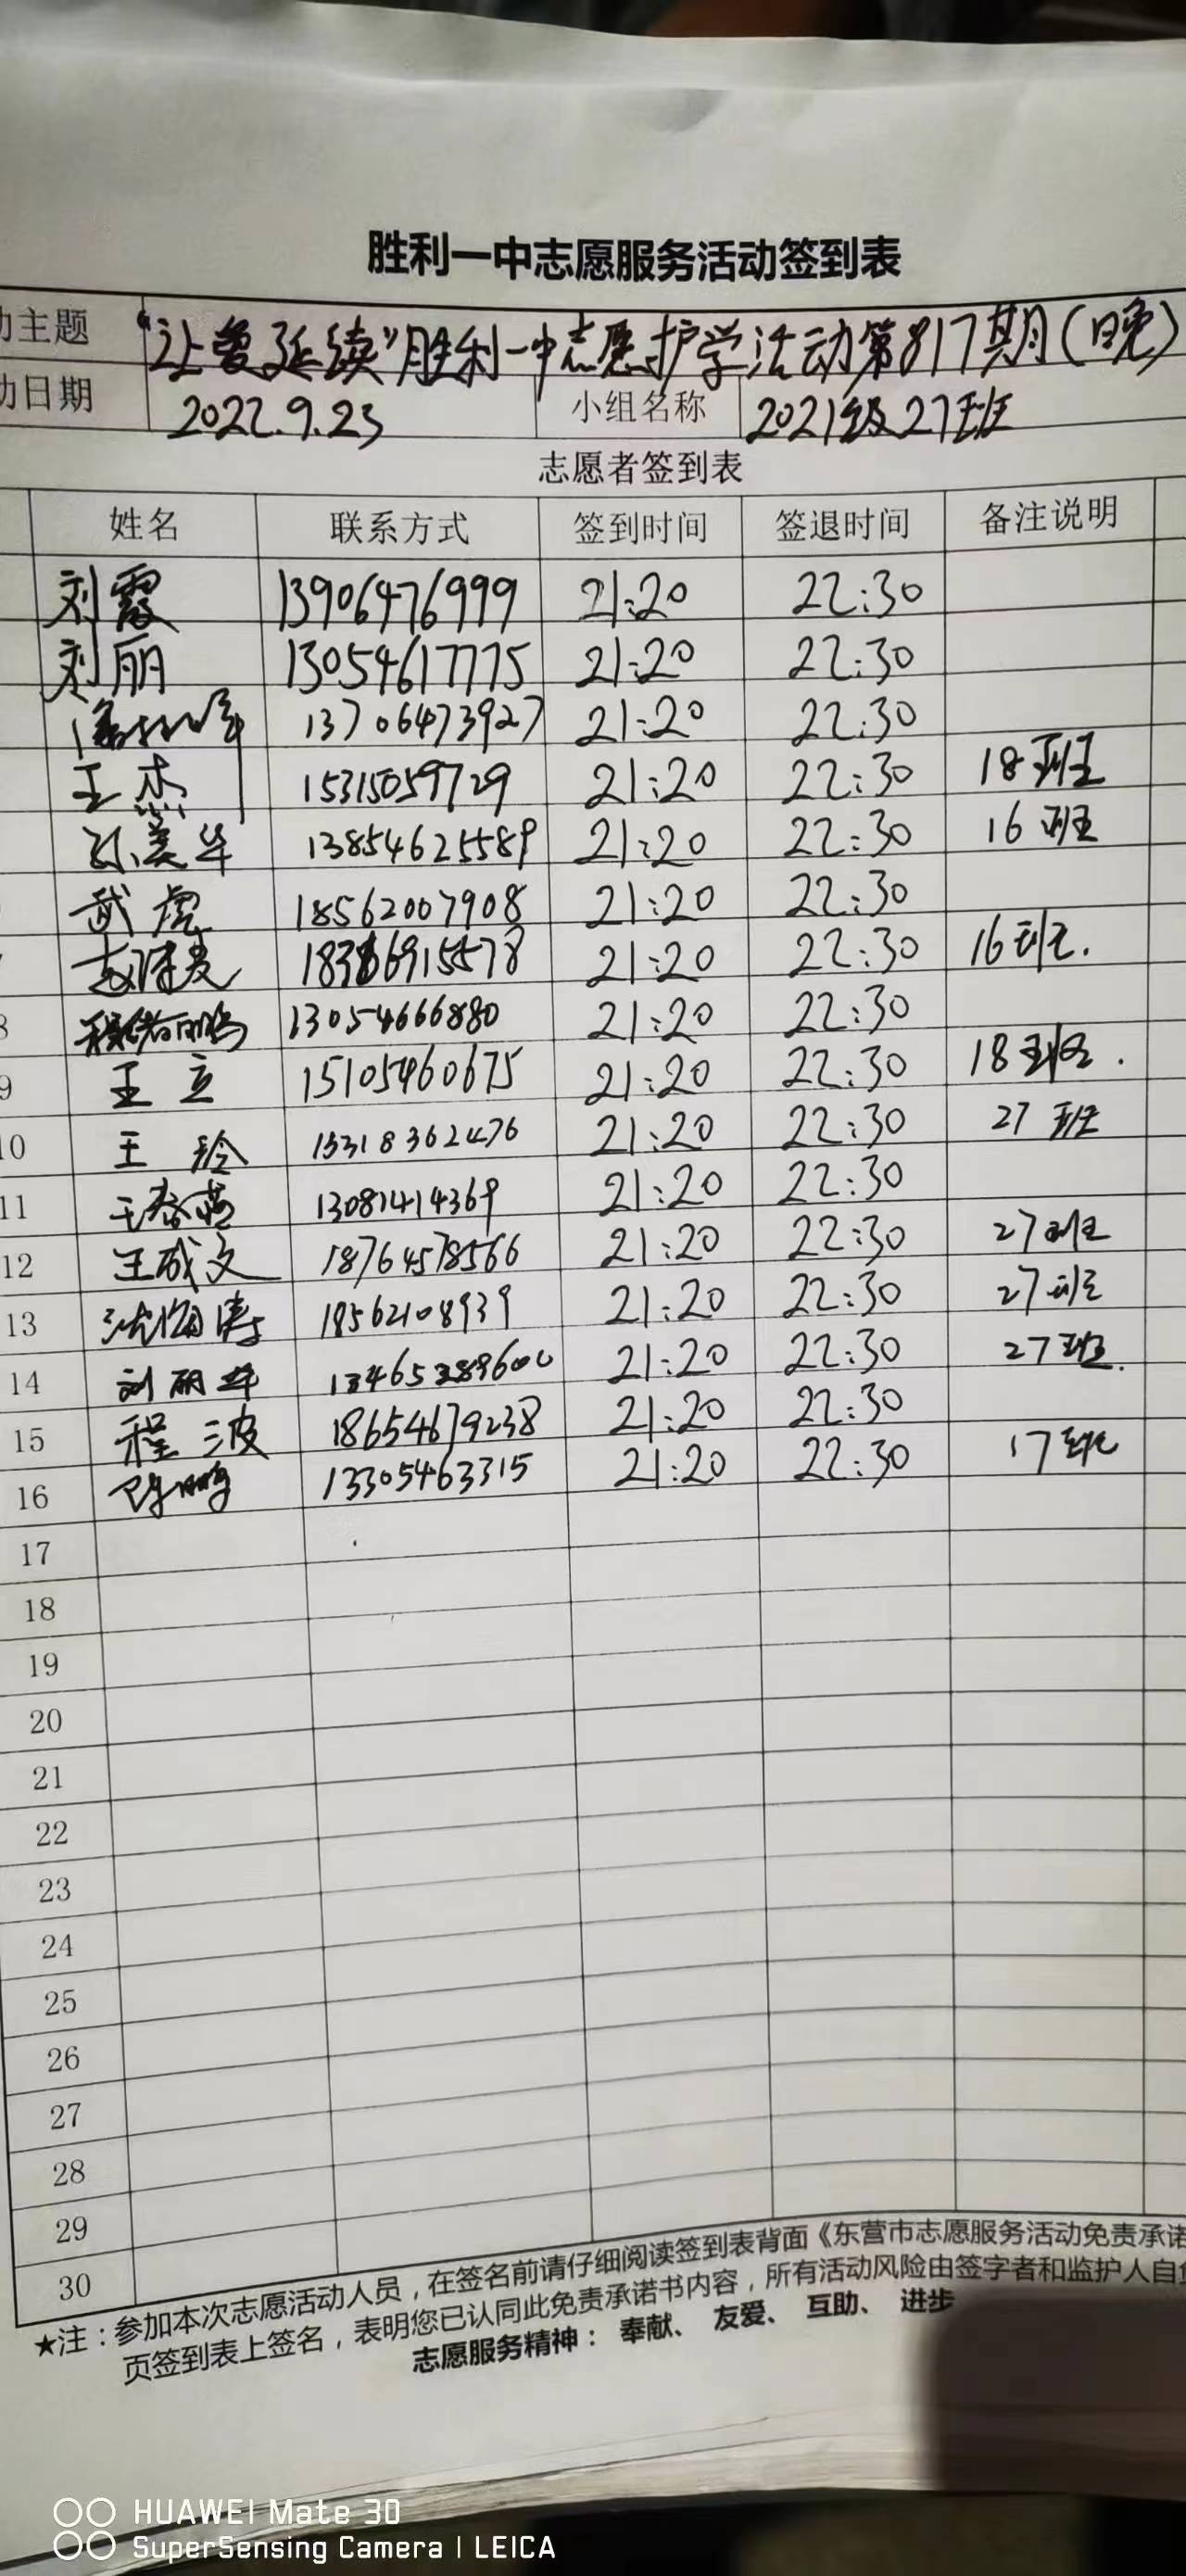 胜利一中志愿服务活动签到表
主题 “让爱延续”胜利一中志愿护学活动第817期(晚)
动日期 2022.9.23 小组名称 2021级27班
志愿者签到表
姓名 联系方式 签到时间 签退时间 备注说明
刘霞 13906476999 21:20 22:30
刘丽 13054617775 21:20 22:30
13706473927 21:20 22:30
王杰 15315059729 21:20 22:30 18班
孙美华 13854625589 21:20 22:30 16班
武虎 18562007908 21:20 22:30
21:20 22:30 16班.
8 13054666880 21:20 22:30
9 王立 15105460675 21:20 22:30 18班.
10 王玲 15318362476 21:20 22:30 27班
11 王春燕 13081414369 21:20 22:30
12 王成文 18764578566 21:20 22:30 27班
13 沈海涛 18562108939 21:20 22:30 27班
14 刘丽华 13465289600 21:20 22:30 27班.
15 程三波 18654679238 21:20 22:30
16 陈鹏 13305463315 21:20 22:30 17班
17
18
19
20
21
22
23
24
25
26
27
28
29
30
★注：参加本次志愿活动人员，在签名前请仔细阅读签到表背面《东营市志愿服务活动免责承诺
页签到表上签名，表明您已认同此免责承诺书内容，所有活动风险由签字者和监护人自
志愿服务精神：奉献、友爱、互助、进步
HUAWEI Mate 30
SuperSensing Camera | LEICA